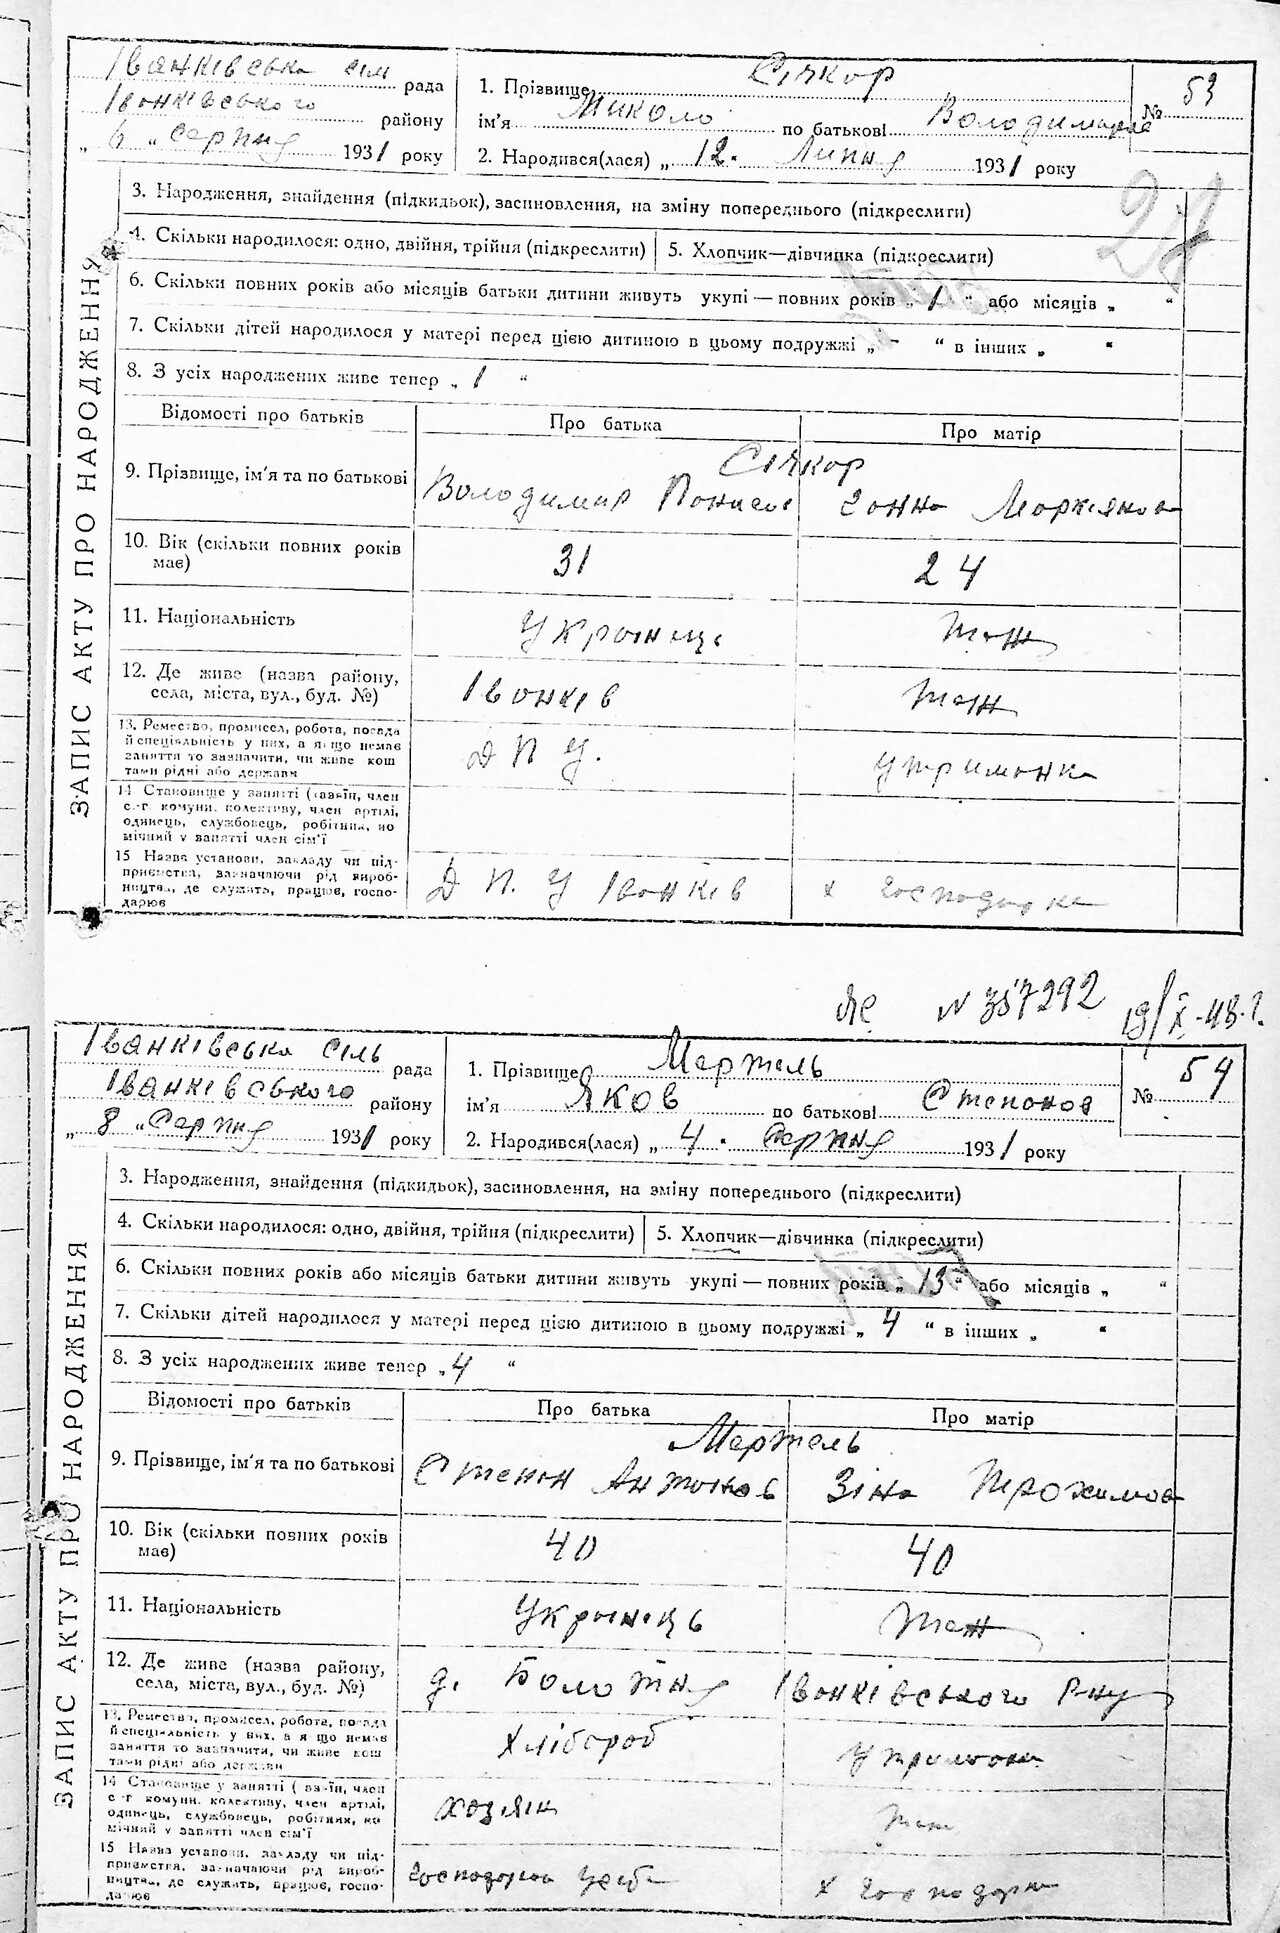 Іванківська сіл рада
Іванківського району
„ 6 „ Серпня 1931 року
1. Прізвище Січкор
ім'я Микола по батькові Володимиров
2. Народився(лася) „ 12. Липня 1931 року
№ 53
ЗАПИС АКТУ ПРО НАРОДЖЕННЯ
3. Народження, знайдення (підкидьок), засиновлення, на зміну попереднього (підкреслити)
4. Скільки народилося: одно, двійня, трійня (підкреслити)
5. Хлопчик—дівчинка (підкреслити)
6. Скільки повних років або місяців батьки дитини живуть укупі — повних років „ 1 “ або місяців „ “
7. Скільки дітей народилося у матері перед цією дитиною в цьому подружжі „ - “ в інших „ “
8. З усіх народжених живе тепер „ 1 “
Відомості про батьків
Про батька
Про матір
9. Прізвище, ім'я та по батькові
Січкор
Володимир Панасов
Ганна Маркіянова
10. Вік (скільки повних років має)
31
24
11. Національність
Українець
теж
12. Де живе (назва району, села, міста, вул., буд. №)
Іванків
теж
13. Ремество, промисел, робота, посада й спеціяльність у них, а якщо немає заняття то зазначити, чи живе коштами рідні або держави
Д П У.
утриманка
14 Становище у занятті (хазяїн, член с.-г комуни, колективу, член артілі, одинець, службовець, робітник, помічний у занятті член сім'ї
15 Назва установи, закладу чи підприємства, зазначаючи рід виробництва, де служить, працює, господарює
Д П. У Іванків
х господарка
№ 357292 19/X-48 г.
Іванківська сіль рада
Іванківського району
„ 8 „ Серпня 1931 року
1. Прізвище Мартель
ім'я Яков по батькові Степанов
2. Народився(лася) „ 4 . Серпня 1931 року
№ 54
ЗАПИС АКТУ ПРО НАРОДЖЕННЯ
3. Народження, знайдення (підкидьок), засиновлення, на зміну попереднього (підкреслити)
4. Скільки народилося: одно, двійня, трійня (підкреслити)
5. Хлопчик—дівчинка (підкреслити)
6. Скільки повних років або місяців батьки дитини живуть укупі — повних років „ 13 “ або місяців „ “
7. Скільки дітей народилося у матері перед цією дитиною в цьому подружжі „ 4 “ в інших „ “
8. З усіх народжених живе тепер „ 4 “
Відомості про батьків
Про батька
Про матір
9. Прізвище, ім'я та по батькові
Мартель
Степан Антонов
Зіна Трохимов
10. Вік (скільки повних років має)
40
40
11. Національність
Українець
теж
12. Де живе (назва району, села, міста, вул., буд. №)
д. Болотня Іванківського р-ну
13. Ремество, промисел, робота, посада й спеціяльність у них, а якщо немає заняття то зазначити, чи живе коштами рідні або держави
Хлібороб
14 Становище у занятті (хазяїн, член с.-г комуни, колективу, член артілі, одинець, службовець, робітник, помічний у занятті член сім'ї
хозяїн
теж
15 Назва установи, закладу чи підприємства, зазначаючи рід виробництва, де служить, працює, господарює
х господарка